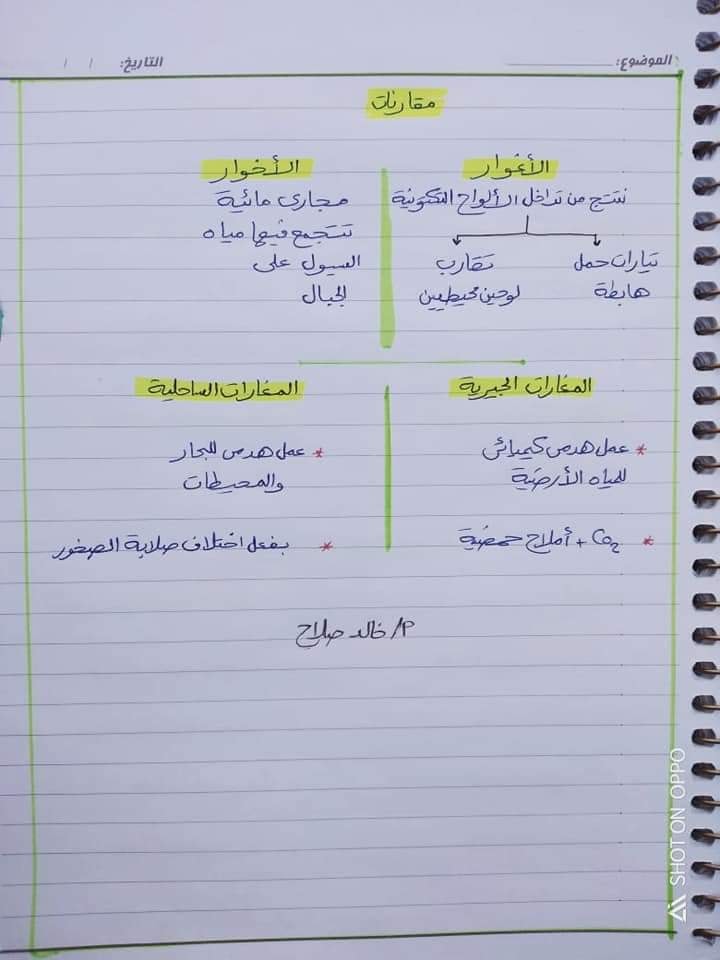 الموضوع:
التاريخ: / /
مقارنات
الأغوار
تنتج من تداخل الألواح التكتونية
تيارات حمل
هابطة
تقارب
لوحين محيطيين
الأخوار
مجارى مائية
تتجمع فيها مياه
السيول على
الجبال
المغارات الجيرية
* عمل هدمى كيميائى
للمياه الأرضية
* Co2 + أملاح حمضية
المغارات الساحلية
* عمل هدمى للبحار
والمحيطات
* بفعل اختلاف صلابة الصخور
أ/ خالد صلاح
SHOT ON OPPO